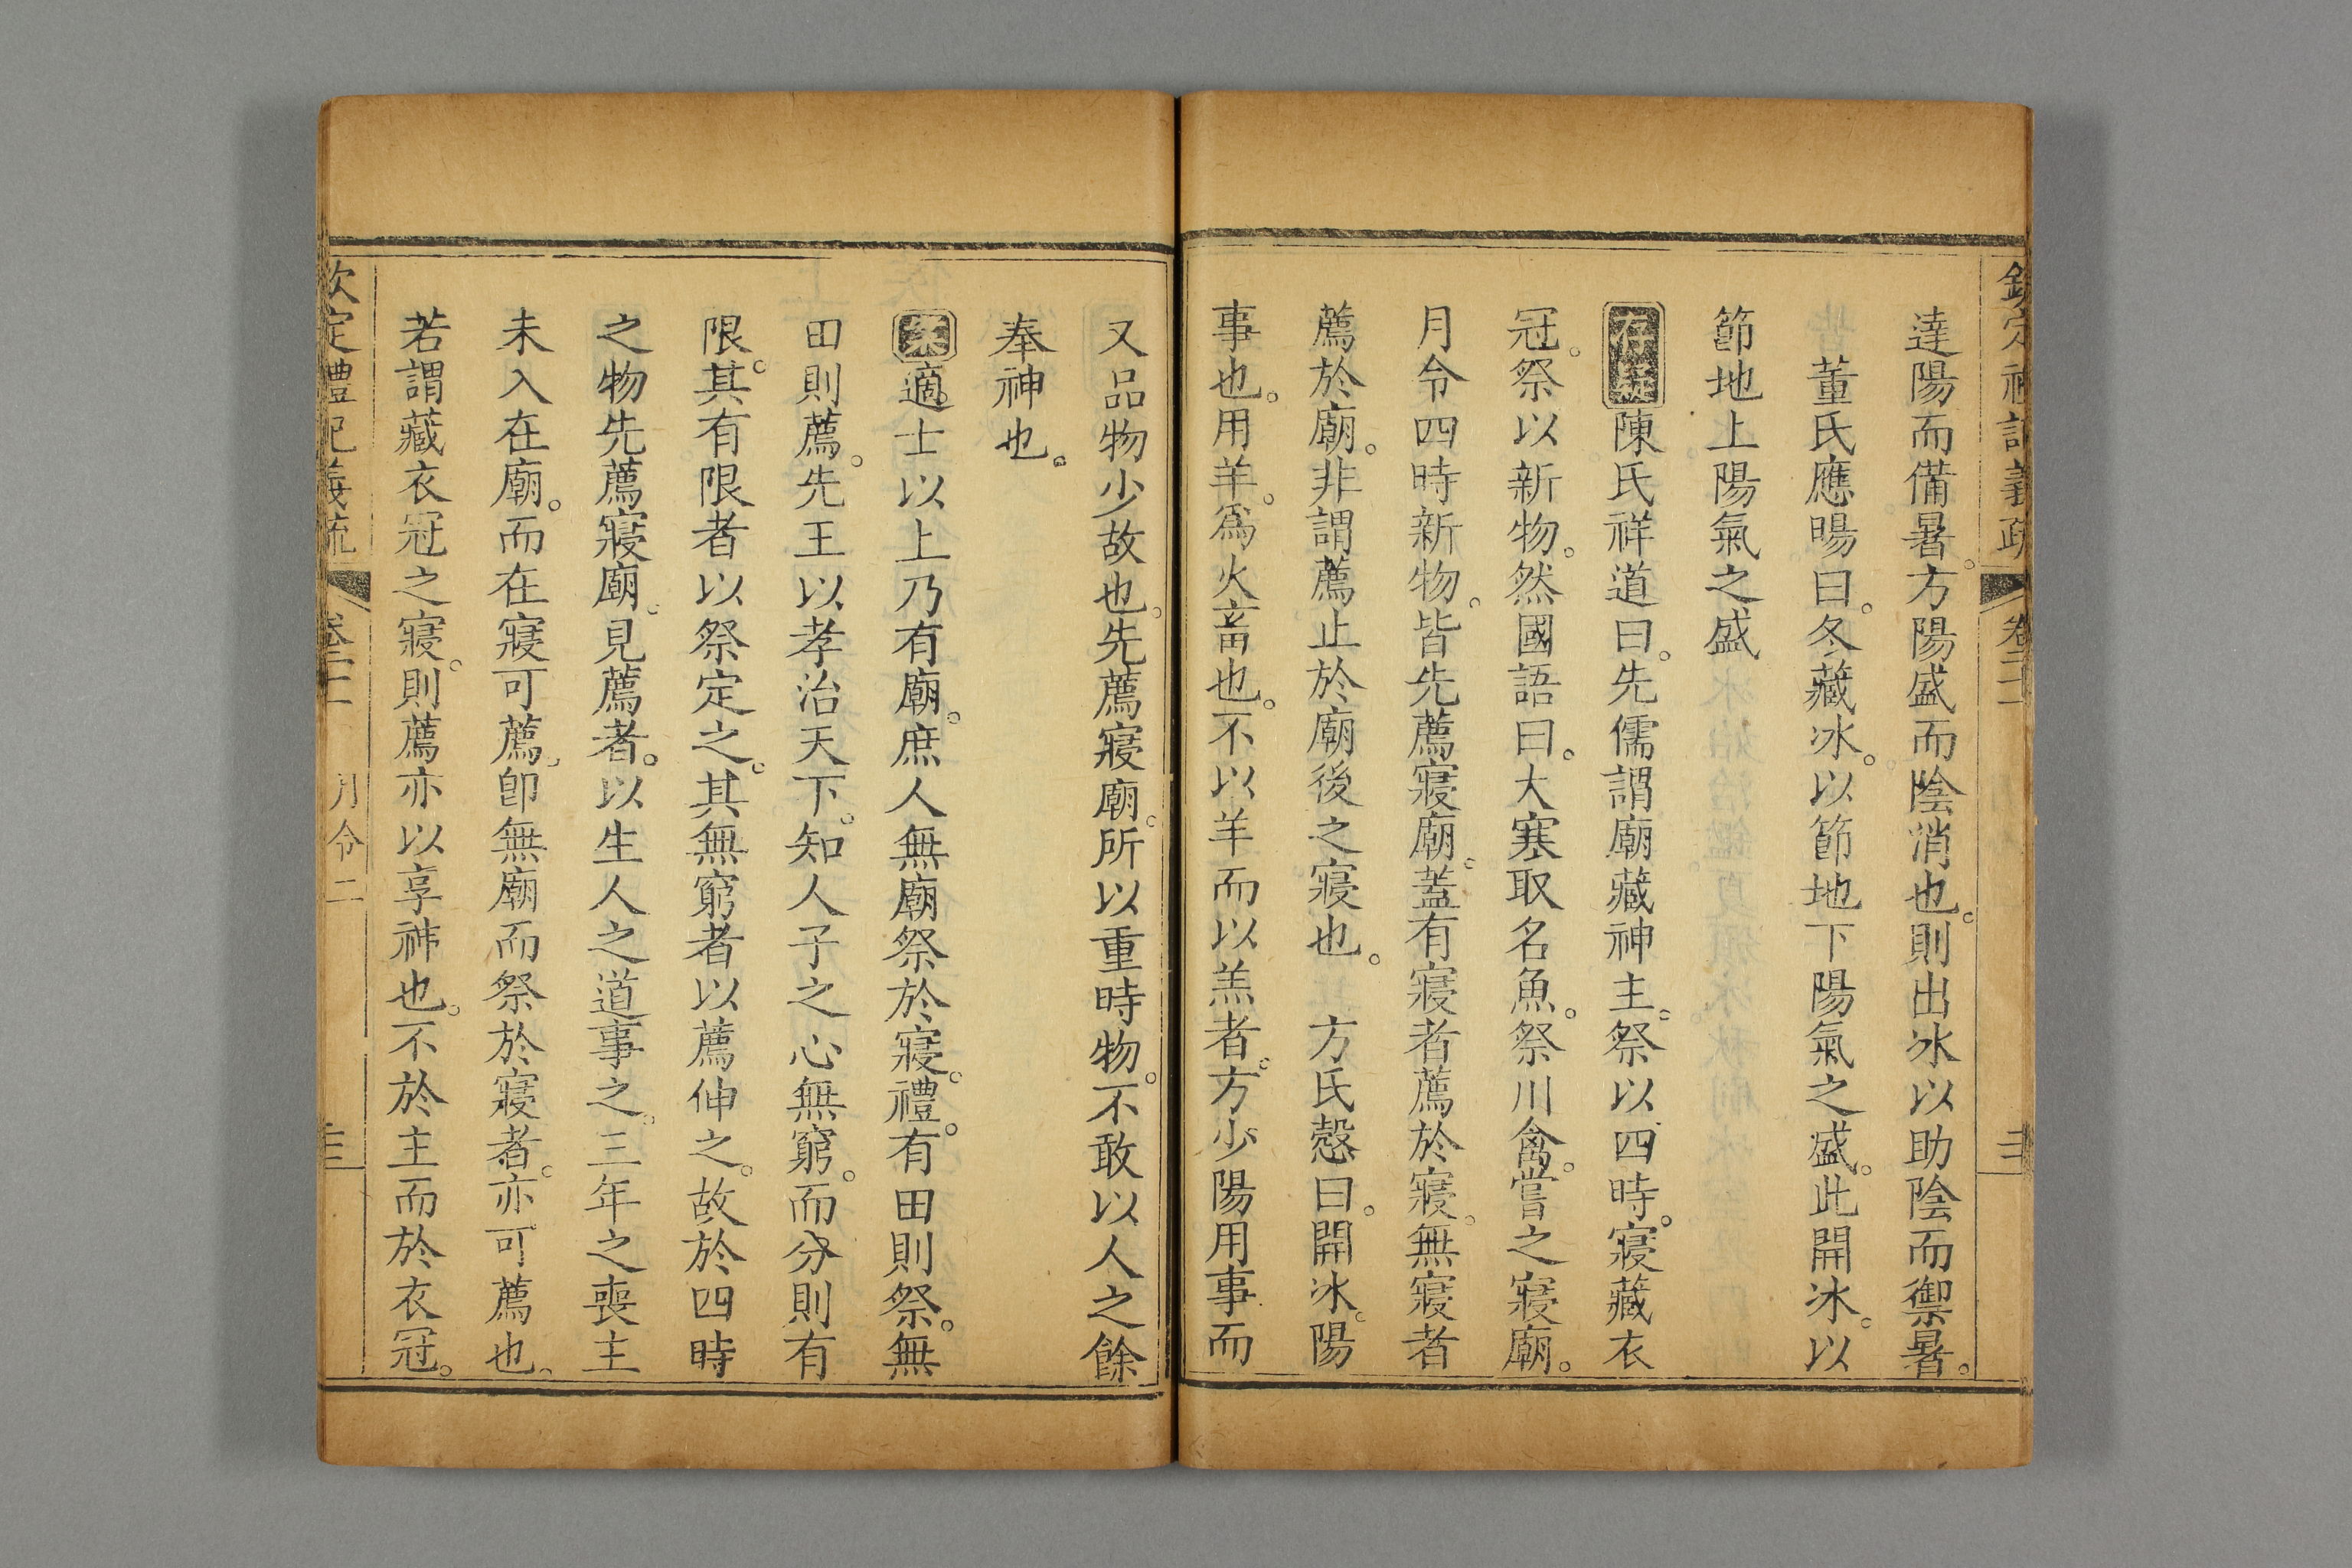 欽定禮記義疏 卷二十二
達陽而備暑。方陽盛而陰消也。則出冰以助陰而禦暑。
董氏應暘曰。冬藏冰。以節地下陽氣之盛。此開冰。以
節地上陽氣之盛
存疑陳氏祥道曰。先儒謂廟藏神主。祭以四時。寢藏衣
冠。祭以新物。然國語曰。大寒取名魚。祭川禽。嘗之寢廟。
月令四時新物。皆先薦寢廟。蓋有寢者薦於寢。無寢者
薦於廟。非謂薦止於廟後之寢也。 方氏慤曰。開冰。陽
事也。用羊。爲火畜也。不以羊而以羔者。方少陽用事而
又品物少故也。先薦寢廟。所以重時物。不敢以人之餘
奉神也。
案適士以上乃有廟。庶人無廟祭於寢。禮。有田則祭。無
田則薦。先王以孝治天下。知人子之心無窮。而分則有
限。其有限者以祭定之。其無窮者以薦伸之。故於四時
之物先薦寢廟。見薦者。以生人之道事之。三年之喪主
未入在廟。而在寢可薦。卽無廟而祭於寢者。亦可薦也。
若謂藏衣冠之寢。則薦亦以享神也。不於主而於衣冠。
欽定禮記義疏 卷二十二 月令二